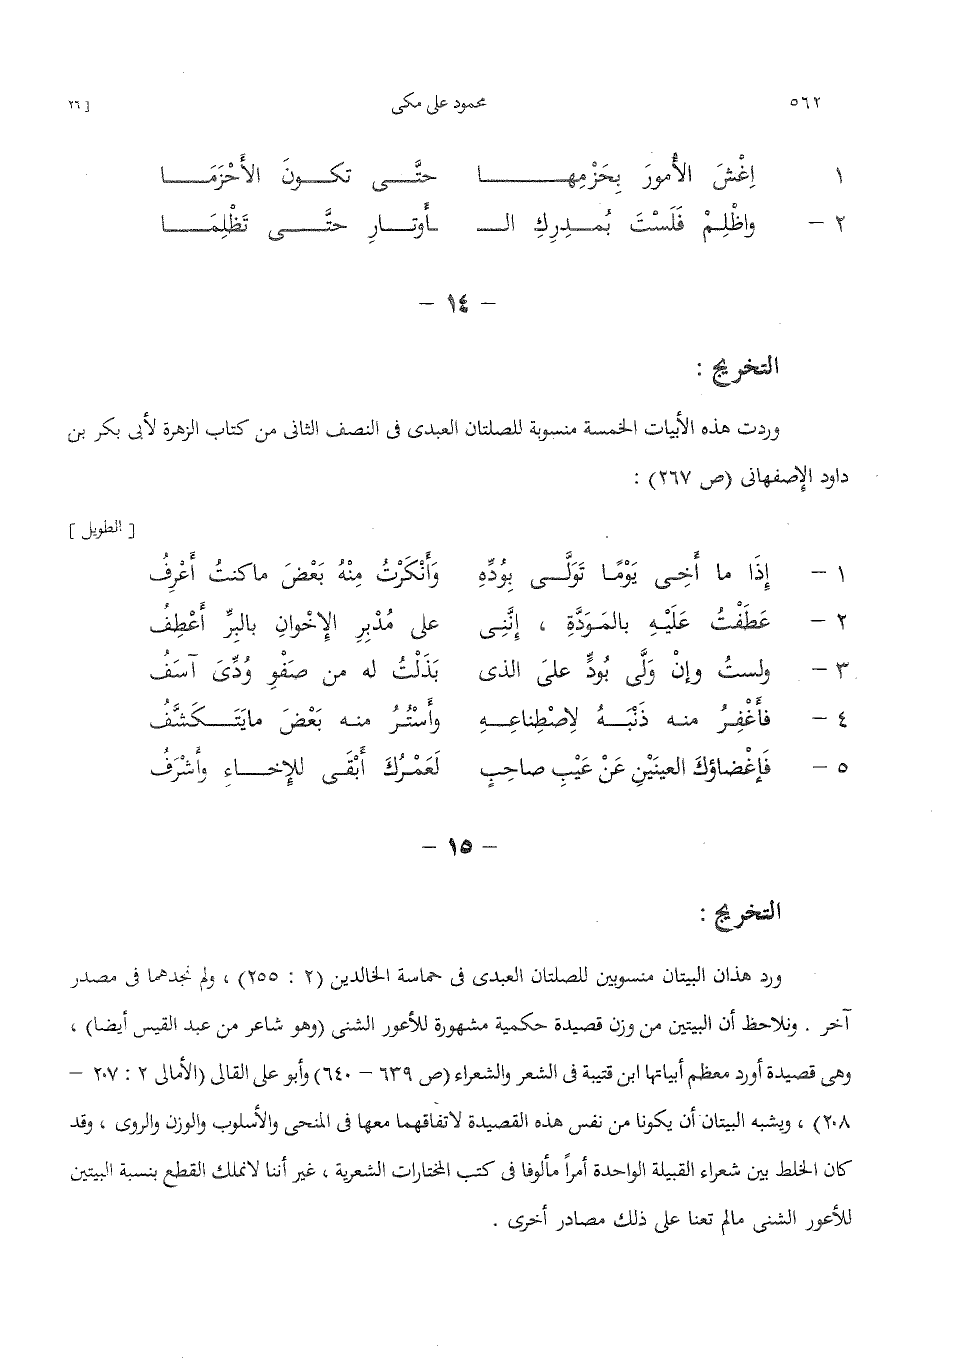 ٥٦٢ محمود على مكى [ ٢٦
١ إِغْشَ الأُمورَ بِحَزْمِهـا حتَّـى تكـونَ الأَحْزَمَـا
٢ – واظْلِـمْ فَلَسْتَ بُمـدِركِ الـ ـأَوتـارِ حتَّـى تَظْلِمَـا
– ١٤ –
التخريج :
وردت هذه الأبيات الخمسة منسوبة للصلتان العبدى فى النصف الثانى من كتاب الزهرة لأبى بكر بن
داود الإصفهانى (ص ٢٦٧) :
[ الطويل ]
١ – إِذَا ما أَخِـى يَوْمًـا تَولَّـى بِوُدِّهِ وَأَنْكَرْتُ مِنْهُ بَعْضَ ماكنتُ أَعْرِفُ
٢ – عَطَفْتُ عَلَيْهِ بالمَـوَدَّةِ ، إِنَّنِـى على مُدْبِرِ الإِخْوانِ بالبِرِّ أَعْطِفُ
٣ – ولستُ وإنْ وَلَّى بُودٍّ علىَ الذى بَذَلْتُ له من صَفْوِ وُدِّىَ آسَفُ
٤ – فأَغْفِـرُ منـه ذَنْبَـهُ لِاصْطِناعِـهِ وأَسْتُـرُ منـه بَعْضَ مايَتَـكَشَّفُ
٥ – فَإغْضاؤكَ العينَيْنِ عَنْ عَيْبِ صاحِبٍ لَعَمْرُكَ أَبْقَـى للإخـاءِ وأَشْرَفُ
– ١٥ –
التخريج :
ورد هذان البيتان منسوبين للصلتان العبدى فى حماسة الخالدين (٢ : ٢٥٥) ، ولم نجدهما فى مصدر
آخر . ونلاحظ أن البيتين من وزن قصيدة حكمية مشهورة للأعور الشنى (وهو شاعر من عبد القيس أيضا) ،
وهى قصيدة أورد معظم أبياتها ابن قتيبة فى الشعر والشعراء (ص ٦٣٩ – ٦٤٠) وأبو على القالى (الأمالى ٢ : ٢٠٧ –
٢٠٨) ، ويشبه البيتان أن يكونا من نفس هذه القصيدة لاتفاقهما معها فى المنحى والأسلوب والوزن والروى ، وقد
كان الخلط بين شعراء القبيلة الواحدة أمراً مألوفا فى كتب المختارات الشعرية ، غير أننا لانملك القطع بنسبة البيتين
للأعور الشنى مالم تعنا على ذلك مصادر أخرى .